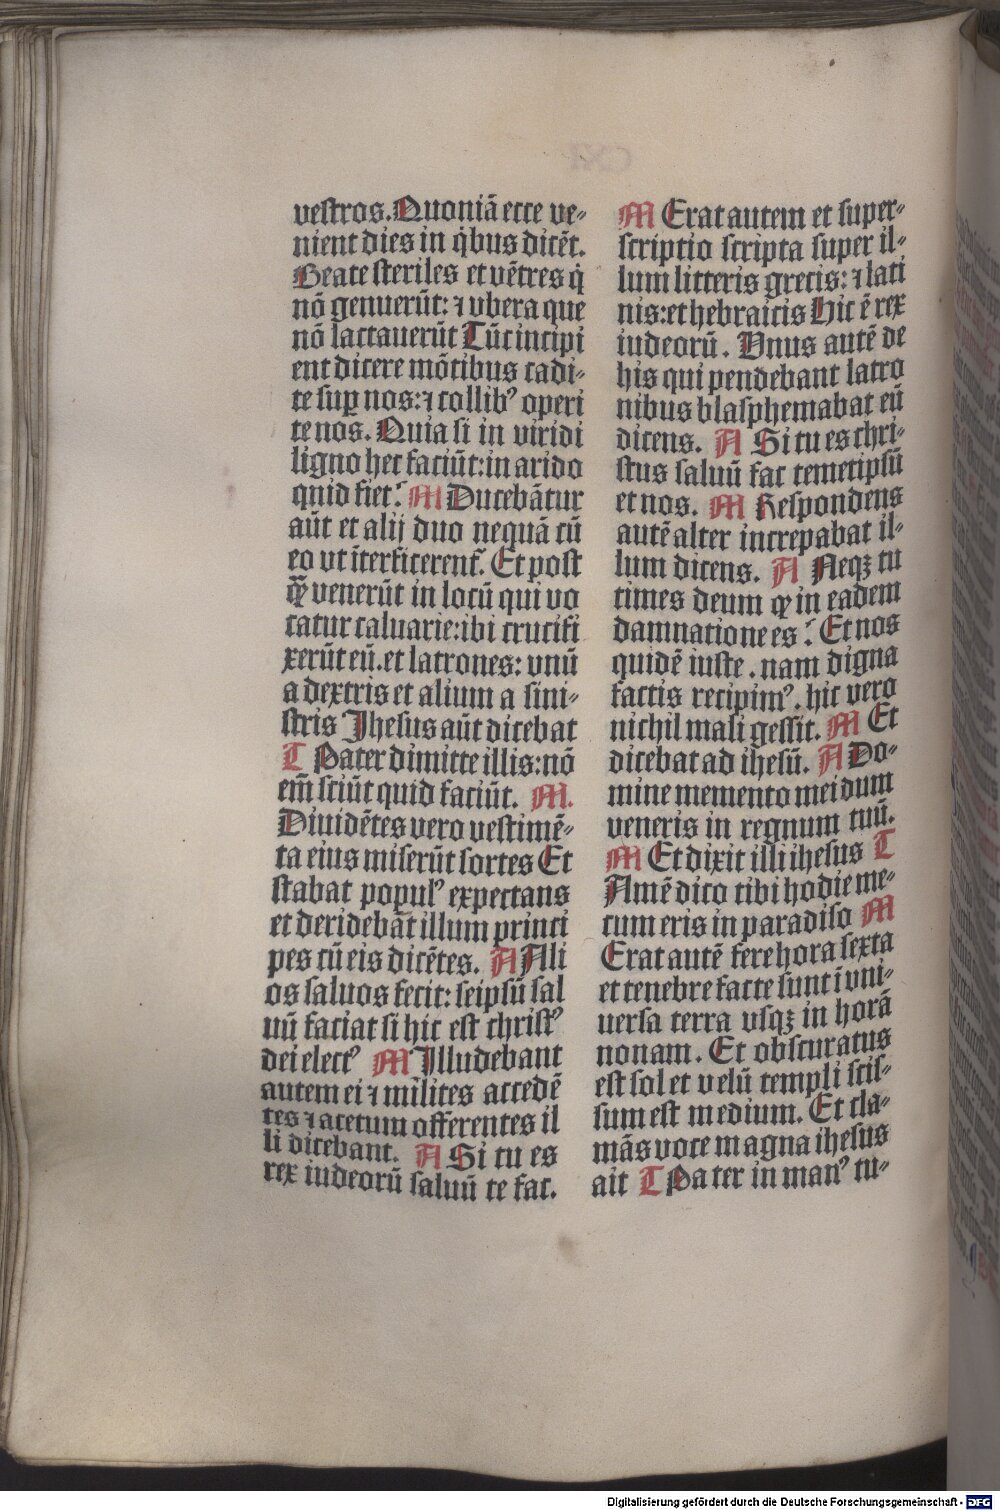 vestros. Quoniā ecce ve-
nient dies in q̇bus dicēt.
Beate steriles et vētres q̇
nō genuerūt: ⁊ vbera que
nō lactauerūt Tūc incipi
ent dicere mōtibus cadi-
te suꝑ nos: ⁊ collibꝰ operi
te nos. Quia si in viridi
ligno hec faciūt: in arido
quid fiet? M Ducebātur
aūt et alij duo nequā cū
eo vt īterficerent̄. Et post
ꝙ̄ venerūt in locū qui vo
catur caluarie: ibi crucifi
xerūt eū. et latrones: vnū
a dextris et alium a sini-
stris Jhesus aūt dicebat
T Pater dimitte illis: nō
em̄ sciūt quid faciūt. M.
Diuidētes vero vestimē-
ta eius miserūt sortes Et
stabat populꝰ expectans
et deridebāt illum princi
pes cū eis dicētes. A Ali
os saluos fecit: seipsū sal
uū faciat si hic est christꝰ
dei electꝰ M Illudebant
autem ei ⁊ milites accedē
tes ⁊ acetum offerentes il
li dicebant. A Si tu es
rex iudeorū saluū te fac.
M Erat autem et super-
scriptio scripta super il-
lum litteris grecis: ⁊ lati
nis: et hebraicis Hic ē rex
iudeorū. Vnus autē de
his qui pendebant latro
nibus blasphemabat eū
dicens. A Si tu es chri-
stus saluū fac temetipsū
et nos. M Respondens
autē alter increpabat il-
lum dicens. A Neqꝫ tu
times deum ꝙ in eadem
damnatione es? Et nos
quidē iuste. nam digna
factis recipimꝰ. hic vero
nichil mali gessit. M Et
dicebat ad ihesū. A Do-
mine memento mei dum
veneris in regnum tuū.
M Et dixit illi ihesus T
Amē dico tibi hodie me-
cum eris in paradiso M
Erat autē fere hora sexta
et tenebre facte sunt ī vni-
uersa terra vsqꝫ in horā
nonam. Et obscuratus
est sol et velū templi scis-
sum est medium. Et cla-
mās voce magna ihesus
ait T Pater in manꝰ tu-
Digitalisierung gefördert durch die Deutsche Forschungsgemeinschaft - DFG